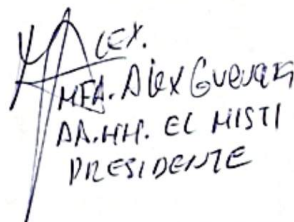 ALEX.
MFA. Alex Guevara
AA.HH. EL MISTI
PRESIDENTE